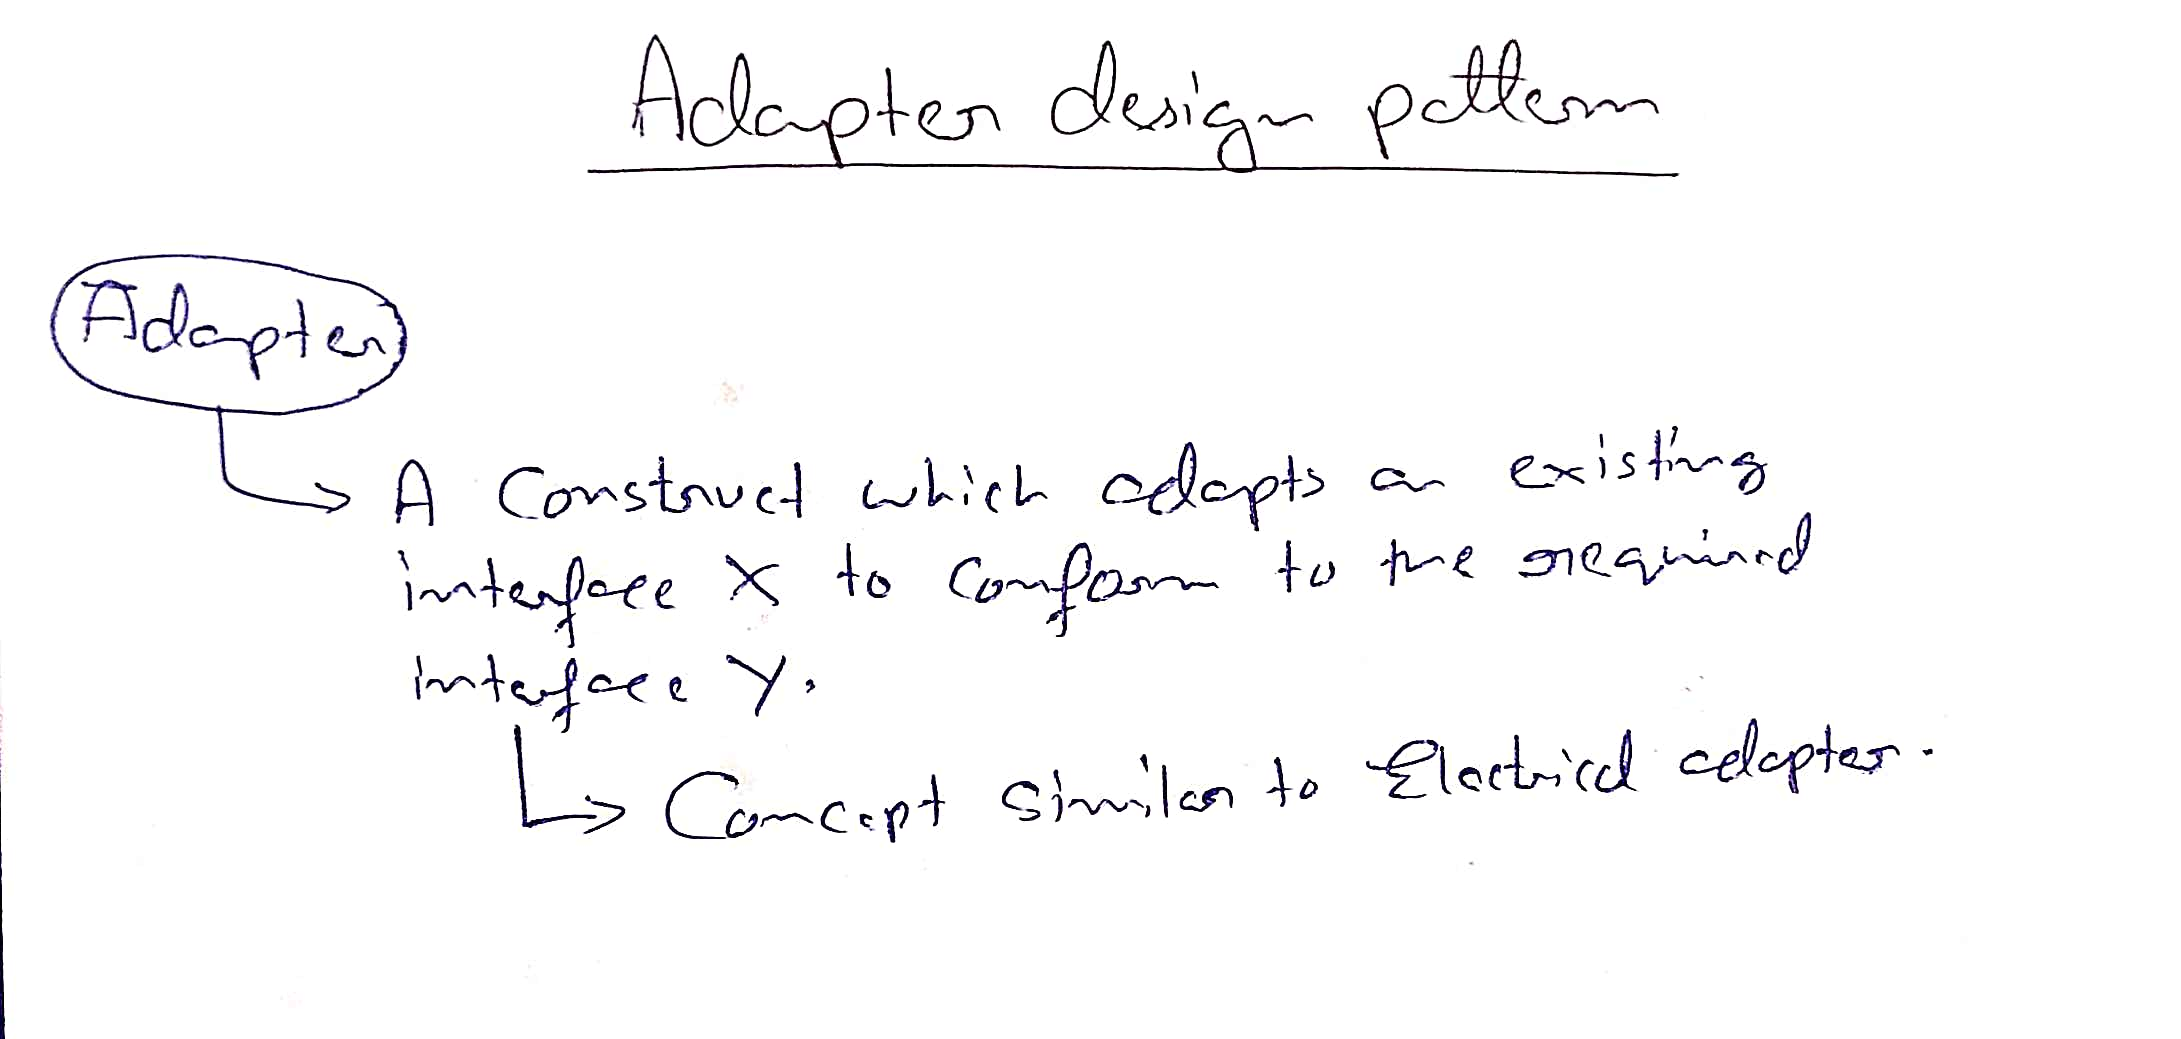 Adapter design pattern
Adapter
A Construct which adapts an existing
interface X to Conform to the required
interface Y.
Concept similar to Electrical adapter.